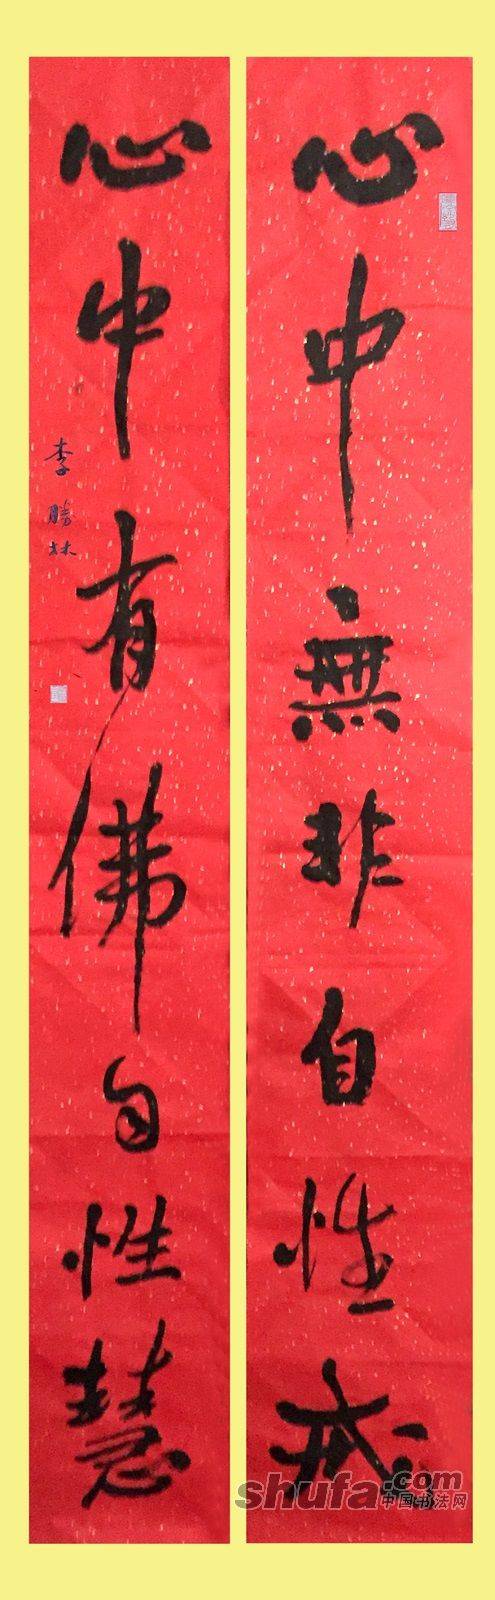 心中無非自性戒
心中有佛自性慧
李勝林
shufa.com
中国书法网